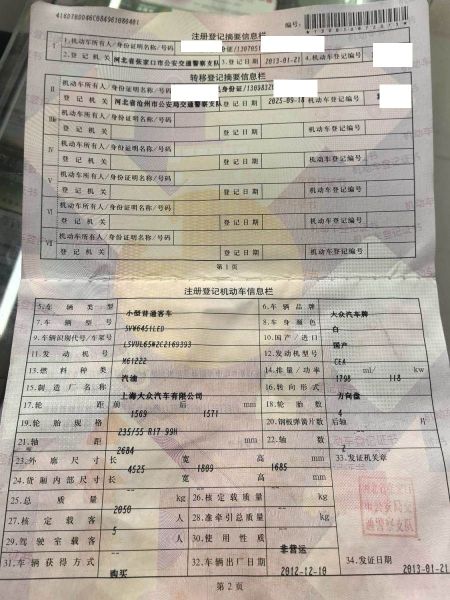 编号:
注册登记摘要信息栏
I 1.机动车所有人/身份证明名称/号码
2.登记机关 河北省张家口市公安交通警察支队 3.登记日期 2013-01-21 4.机动车登记编号
转移登记摘要信息栏
II 机动车所有人/身份证明名称/号码 居民身份证/130983
登记机关 河北省沧州市公安局交通警察支队 登记日期 2025-09-18 机动车登记编号
III 机动车所有人/身份证明名称/号码
登记机关 登记日期 机动车登记编号
IV 机动车所有人/身份证明名称/号码
登记机关 登记日期 机动车登记编号
V 机动车所有人/身份证明名称/号码
登记机关 登记日期 机动车登记编号
VI 机动车所有人/身份证明名称/号码
登记机关 登记日期 机动车登记编号
VII 机动车所有人/身份证明名称/号码
登记机关 登记日期 机动车登记编号
第1页
注册登记机动车信息栏
5.车辆类型 小型普通客车 6.车辆品牌 大众汽车牌
7.车辆型号 SVW6451LED 8.车身颜色 白
9.车辆识别代号/车架号 LSVUL65N2C2169393 10.国产/进口 国产
11.发动机号 M61222 12.发动机型号 CEA
13.燃料种类 汽油 14.排量/功率 1798 ml/ 118 kw
15.制造厂名称 上海大众汽车有限公司 16.转向形式 方向盘
17.轮距 前 1569 后 1571 mm 18.轮胎数 4
19.轮胎规格 235/55 R17 99H 20.钢板弹簧片数 后轴 -- 片
21.轴距 2684 mm 22.轴数 2
23.外廓尺寸 长 4525 宽 1809 高 1685 mm 33.发证机关章
24.货厢内部尺寸 长 -- 宽 -- 高 -- mm
25.总质量 2050 kg 26.核定载质量 -- kg
27.核定载客 5 人 28.准牵引总质量 -- kg
29.驾驶室载客 -- 人 30.使用性质 非营运
31.车辆获得方式 购买 32.车辆出厂日期 2012-12-10 34.发证日期 2013-01-21
第2页